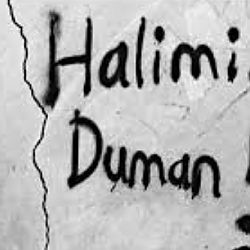 Halimi
Duman